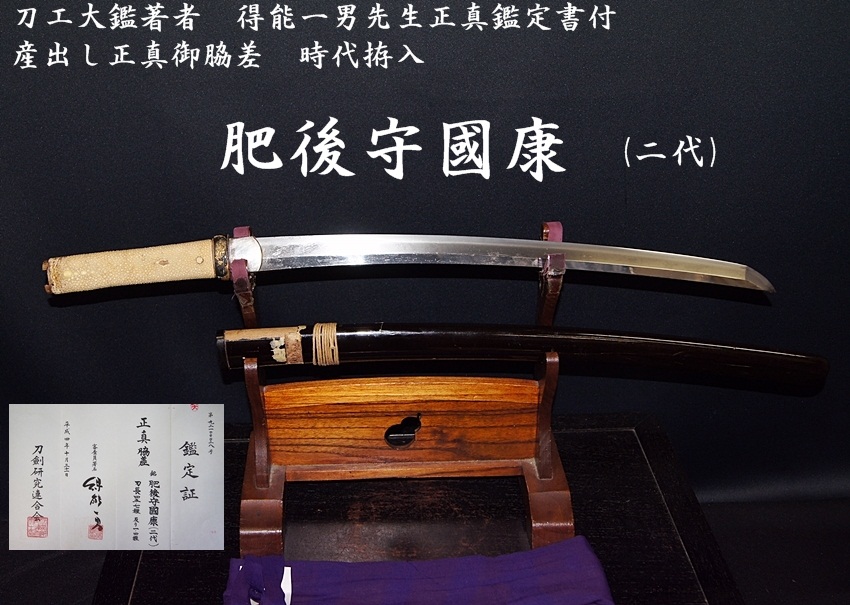 刀工大鑑著者　得能一男先生正真鑑定書付
産出し正真御脇差　時代拵入
肥後守國康　(二代)
鑑定証
正真 脇差
銘 肥後守國康(二代)
平成四年十月
刀剣研究連合会